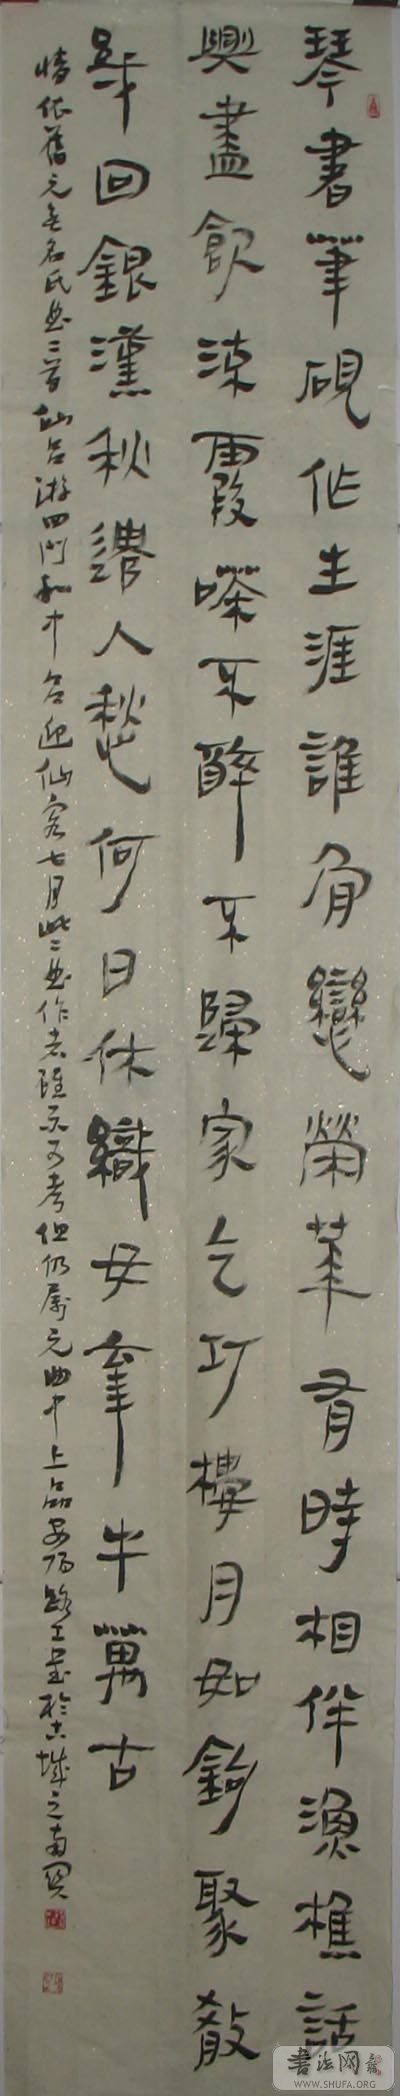 琴書筆硯作生涯誰肯戀榮華有時相伴漁樵話
興盡飲流霞嗏不醉不歸家乞巧樓月如鉤聚散
幾回銀漢秋遣人愁何日休織女牽牛萬古
情依舊元無名氏曲二首仙呂游四門和中呂迎仙客七月此二曲作者雖不可考但仍屬元曲中上品安陽路工書於古城之南
書法网
WWW.SHUFA.ORG